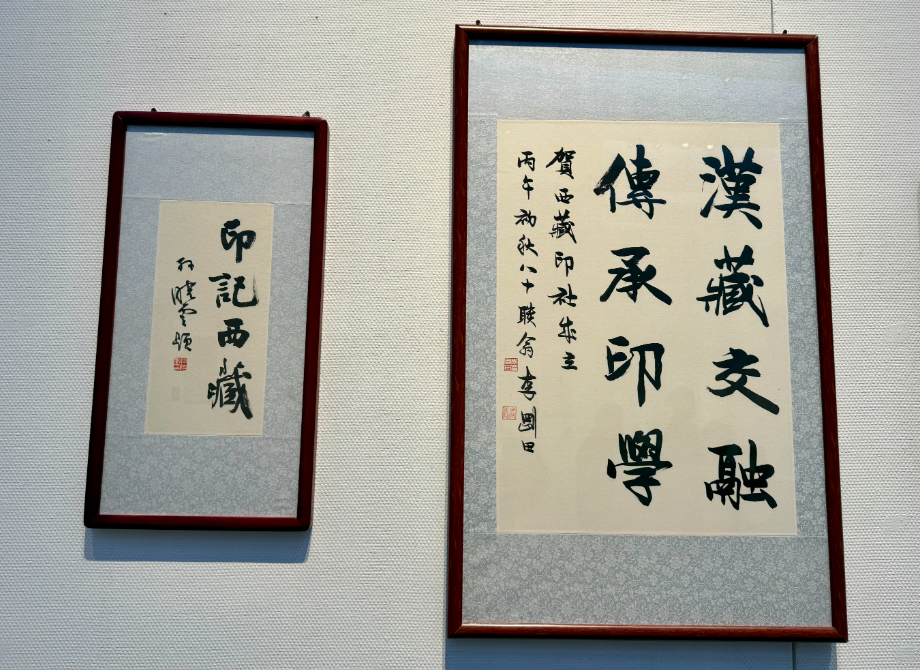 漢藏交融
傳承印學
賀西藏印社成立
丙午初秋八十翁李剛田
印記西藏
孫曉雲題